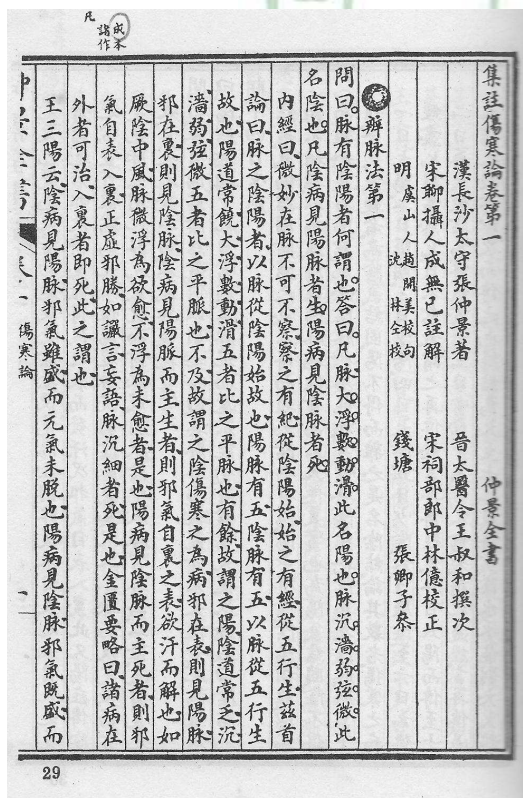 凡
諸作
成本
集註傷寒論卷第一
仲景全書
漢長沙太守張仲景著
晉太醫令王叔和撰次
宋聊攝人成無已註解
宋祠部郎中林億校正
明虞山人趙開美校句
沈林仝校
錢塘
張卿子參
辨脈法第一
問曰脉有陰陽者何謂也答曰凡脉大浮數動滑此名陽也脉沉濇弱弦微此
名陰也凡陰病見陽脉者生陽病見陰脉者死
內經曰微妙在脉不可不察察之有紀從陰陽始始之有經從五行生茲首
論曰脉之陰陽者以脉從陰陽始故也陽脉有五陰脉有五以脉從五行生
故也陽道常饒大浮數動滑五者比之平脉也有餘故謂之陽陰道常乏沉
濇弱弦微五者比之平脈也不及故謂之陰傷寒之為病邪在表則見陽脉
邪在裏則見陰脉陰病見陽脈而主生者則邪氣自裏之表欲汗而解也如
厥陰中風脉微浮為欲愈不浮為未愈者是也陽病見陰脉而主死者則邪
氣自表入裏正虛邪勝如讝言妄語脉沉細者死是也金匱要略曰諸病在
外者可治入裏者即死此之謂也
王三陽云陰病見陽脉邪氣雖盛而元氣未脱也陽病見陰脉邪氣既盛而
仲景全書
傷寒論
一
29